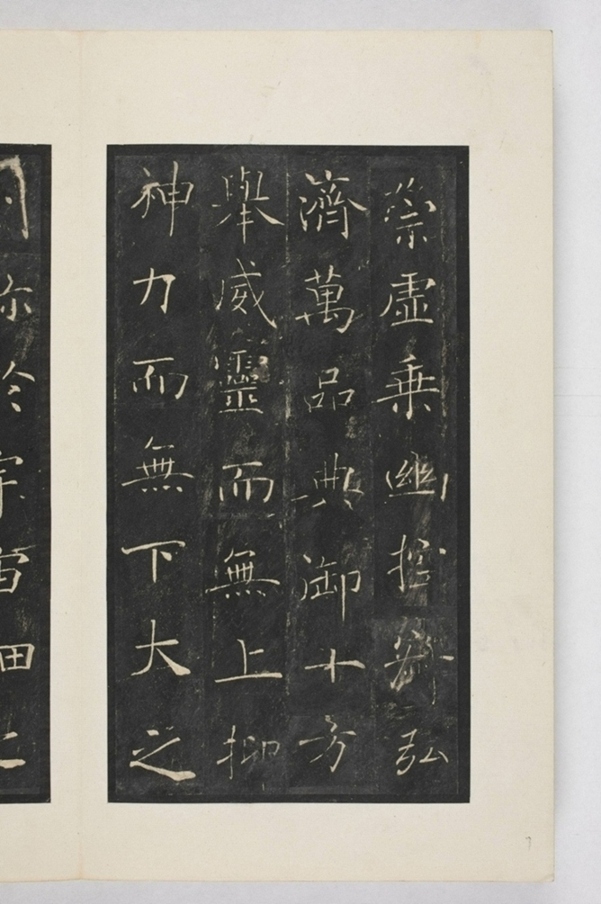 崇虚乗幽控寂弘
濟萬品典御十方
舉威靈而無上抑
神力而無下大之